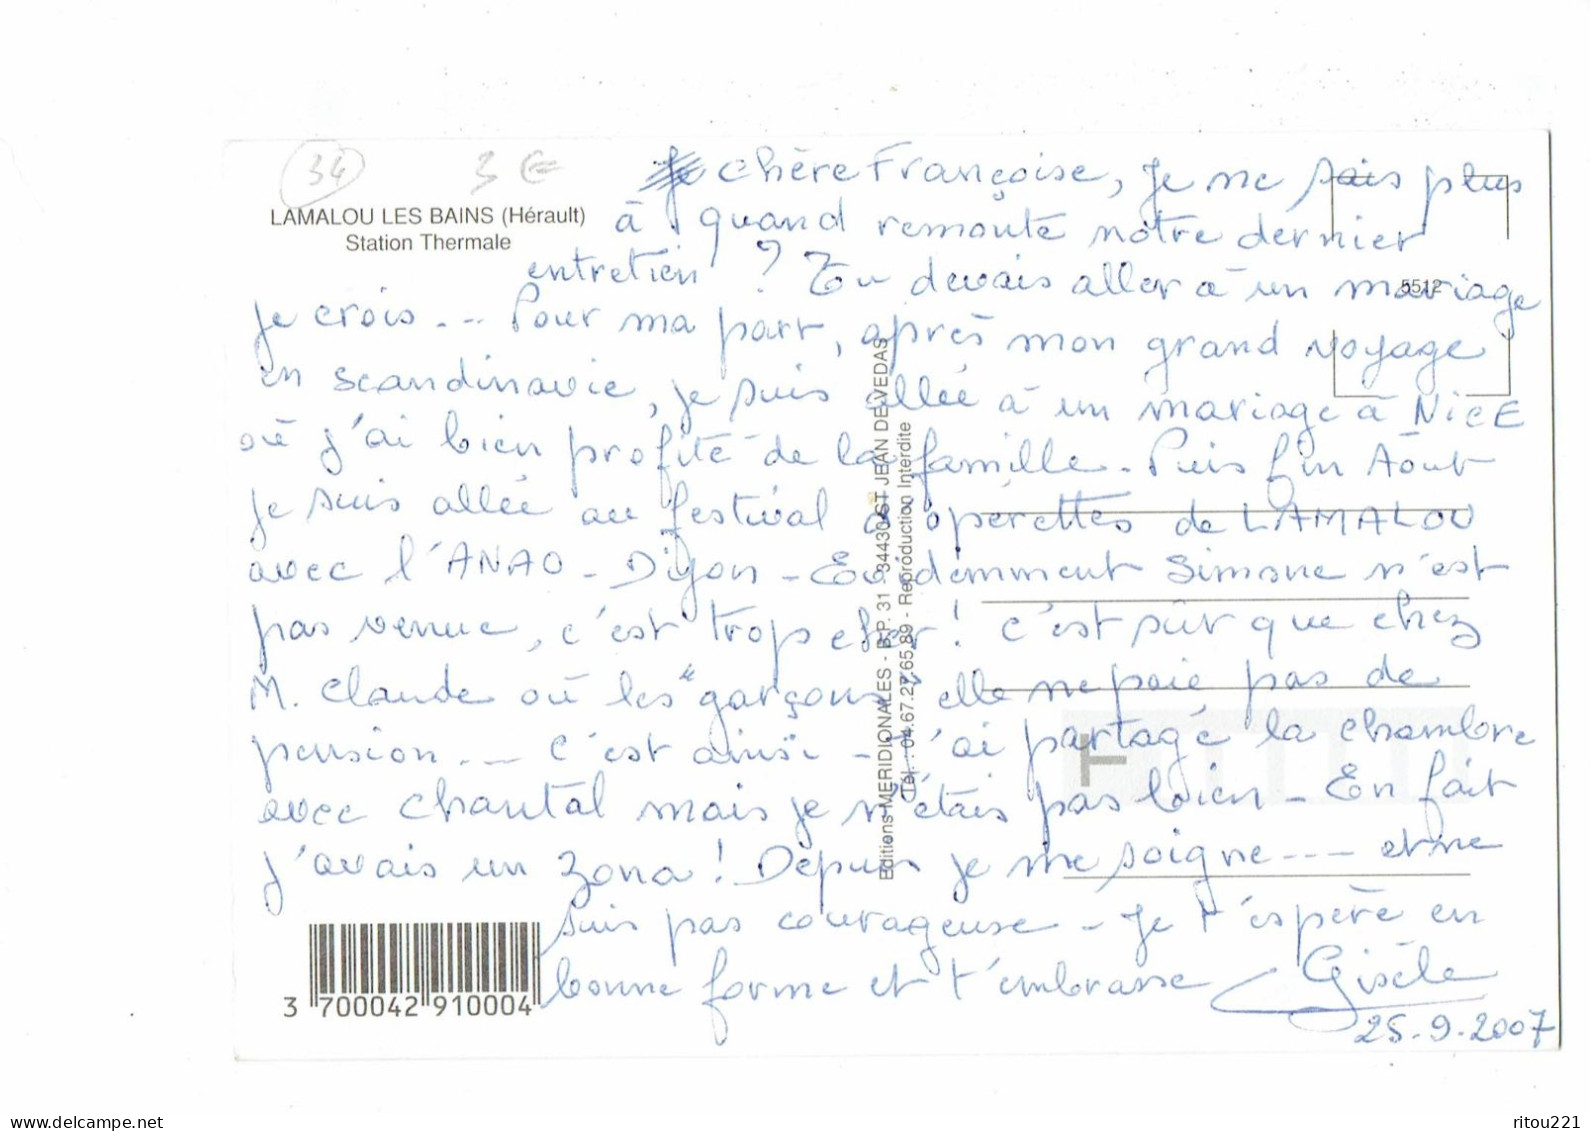 34
3 €
LAMALOU LES BAINS (Hérault)
Station Thermale
chère Françoise, Je ne sais plus
à quand remonte notre dernier
entretien ? Tu devais aller à un mariage
5512
je crois... Pour ma part, après mon grand voyage
en scandinavie, je suis allée à un mariage à NicE
où j'ai bien profité de la famille. Puis fin Août
je suis allée au festival d'opérettes de LAMALOU
avec l'ANAO - Dijon - Evidemment Simone n'est
pas venue, c'est trop cher ! c'est sûr que chez
M. Claude où les "garçons" elle ne paie pas de
pension... c'est ainsi - J'ai partagé la chambre
avec chantal mais je n'étais pas bien - En fait
j'avais un zona ! Depuis je me soigne---- et ne
suis pas courageuse - Je t'espère en
bonne forme et t'embrasse Gisèle
25.9.2007
Editions MERIDIONALES - B.P. 31 - 34430 ST JEAN DE VEDAS
Tél. : 04.67.27.65.89 - Reproduction Interdite
T
3 700042 910004
www.delcampe.net
ritou221